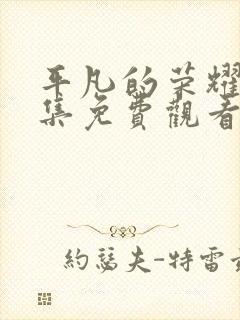 平凡的荣耀
集免費觀看
約瑟夫-特雷